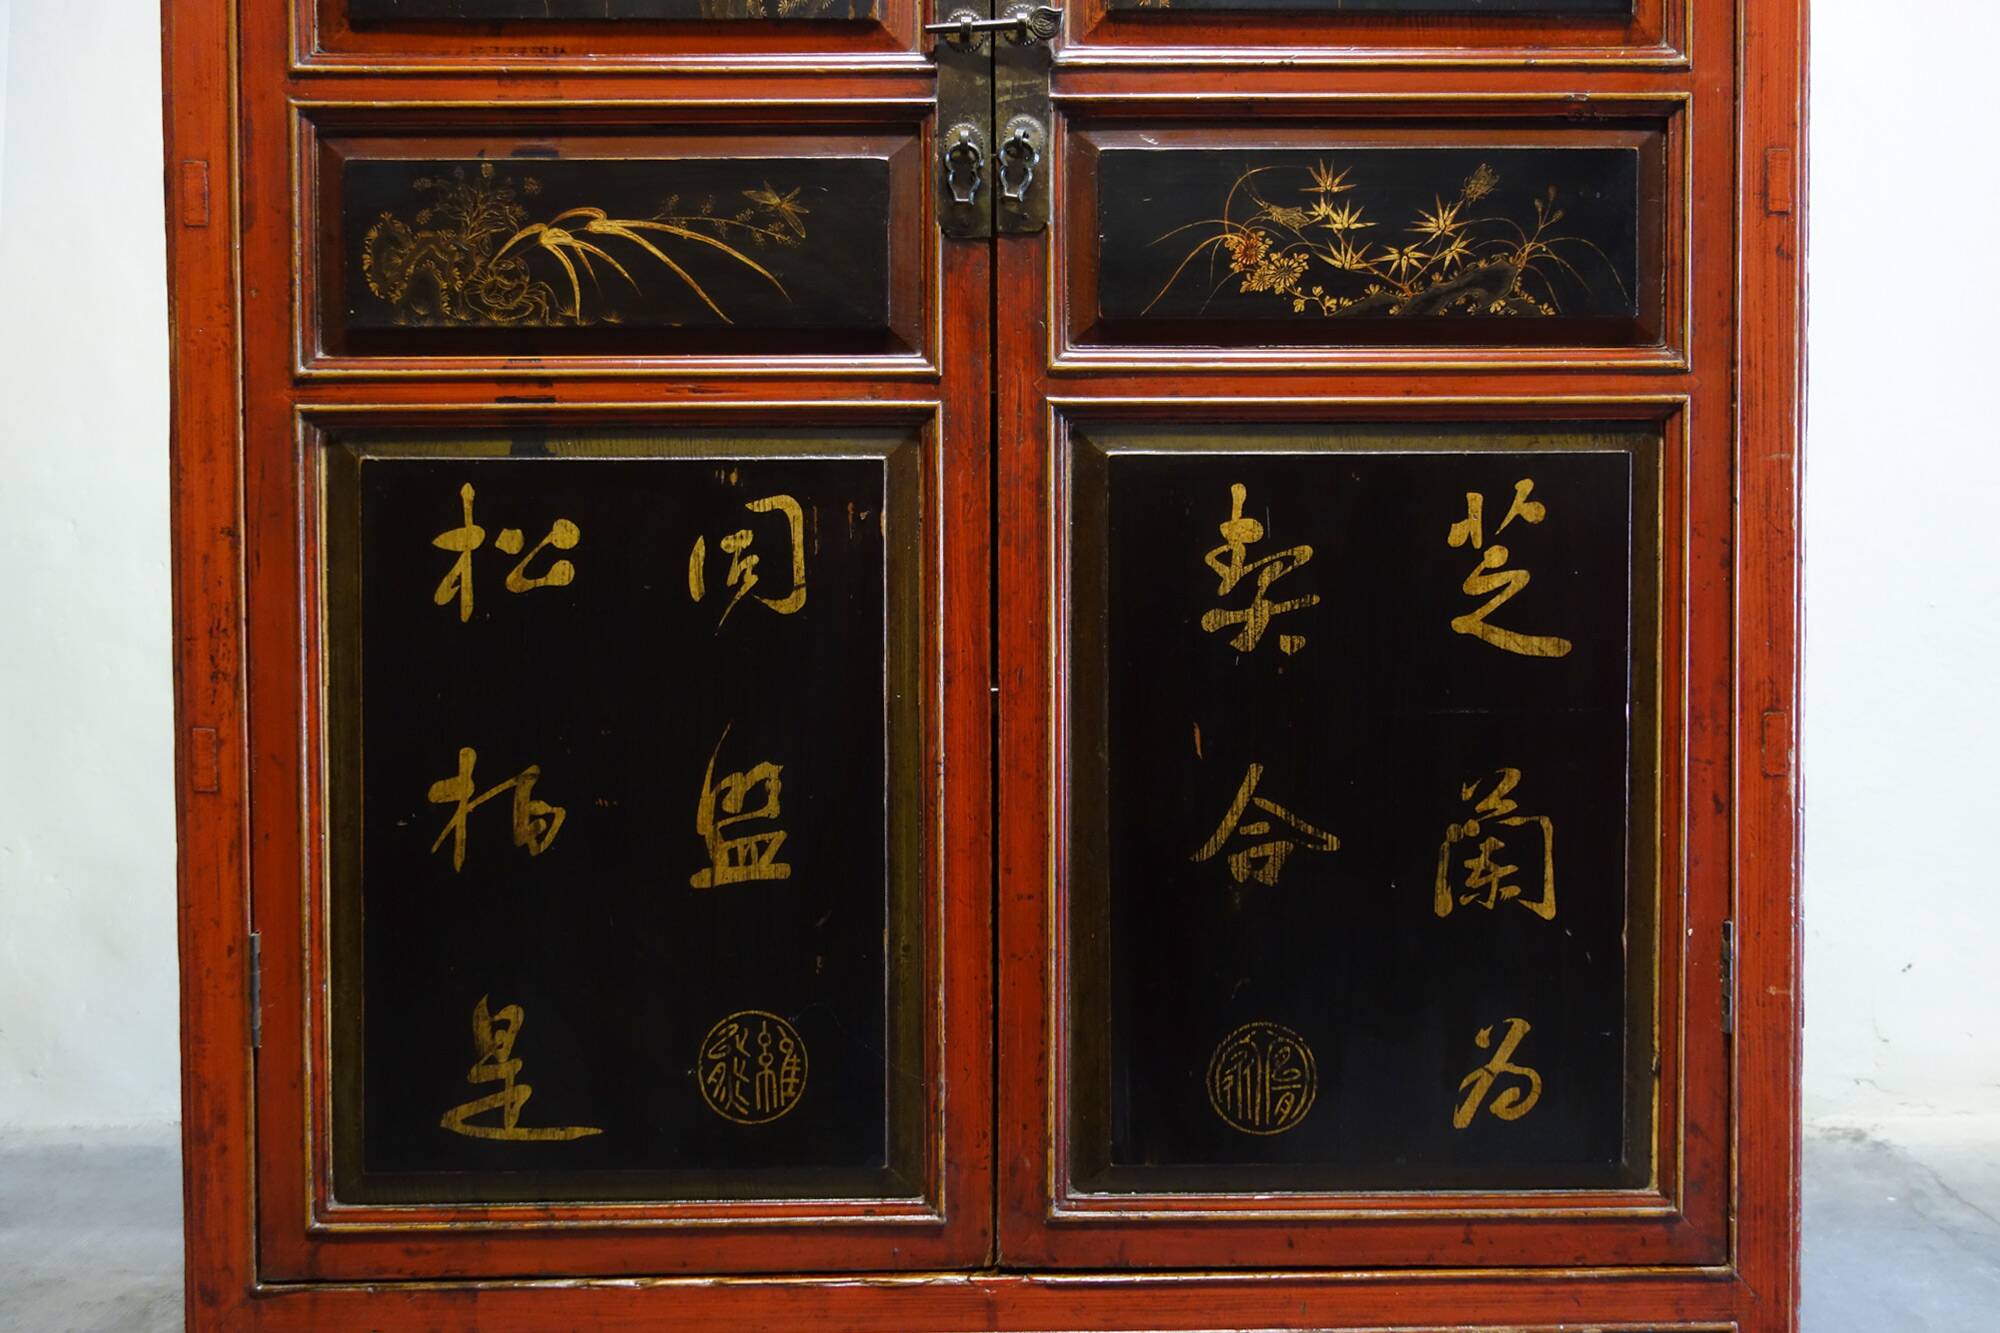 芝蘭为
契合
松柏是
同盟